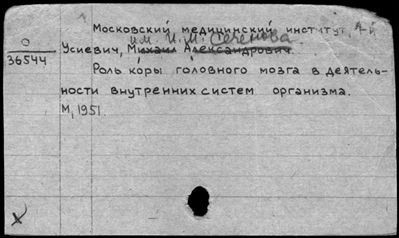 Московский медицинский институт, 1-й
им. И. М. Сеченова.
О
36544
Усиевич, Михаил Александрович.
Роль коры головного мозга в деятель-
ности внутренних систем организма.
М, 1951.